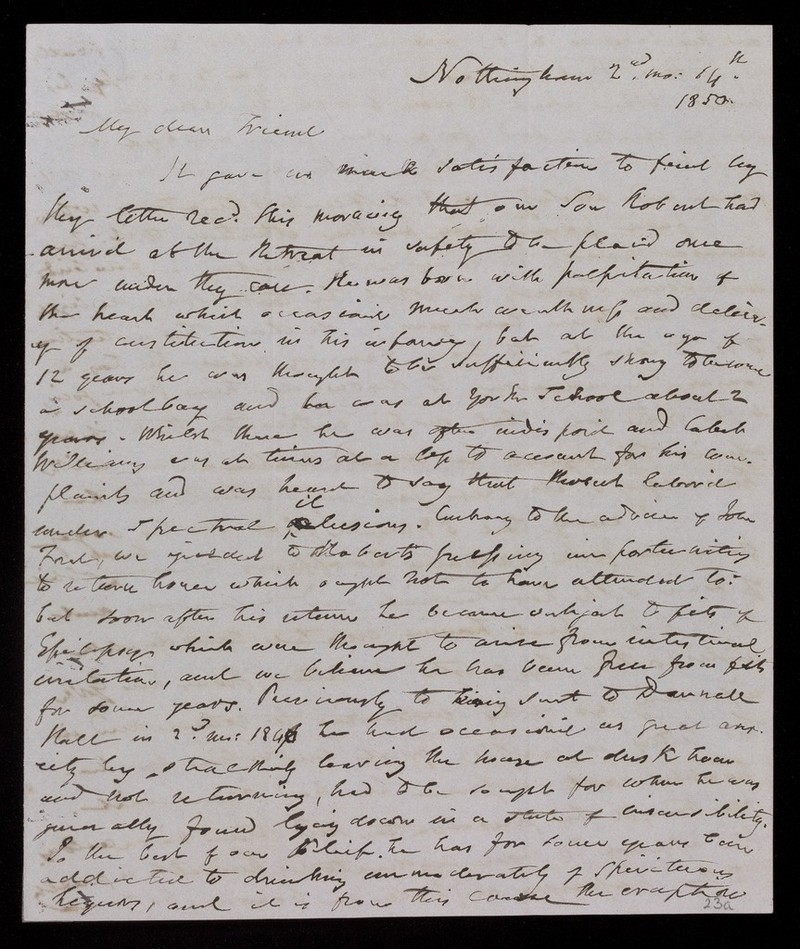 Nottingham 2nd mo: 14th
1850.
My dear Friend
It gave us much satisfaction to find by
thy letter recd. this morning that our Son Robert had
arriv'd at the Retreat in safety to be plac'd once
more under thy care. He was born with palpitation of
the heart which occasion'd much weakness and delica-
cy of constitution in his infancy, but at the age of
12 years he was thought to be sufficiently strong to become
a school boy and he was at York School about 2
years. Whilst there he was often indispos'd and Caleb
Williams was at times at a loss to account for his com-
plaints and was heard to say that Robert labor'd
under spectral illusions. Contrary to the advice of John
Ford, we yielded to Robert's pressing importunities
to return home which ought not to have attended to:
but soon after his return he became subject to fits of
Epilepsy which were thought to arise from intestinal
irritation, and we believe he has been free from fits
for some years. Previously to being sent to Dunnall
Hall in 2nd mo: 184 he had occasion'd us great anx-
iety by leaving the house at dusk hour
and not returning, had to be sought for when he was
generally found lying down in a state of insensibility.
To the best of our belief he has for some years been
addicted to drinking immoderately of spirituous
liquors, and it is from this cause the eruption
23a